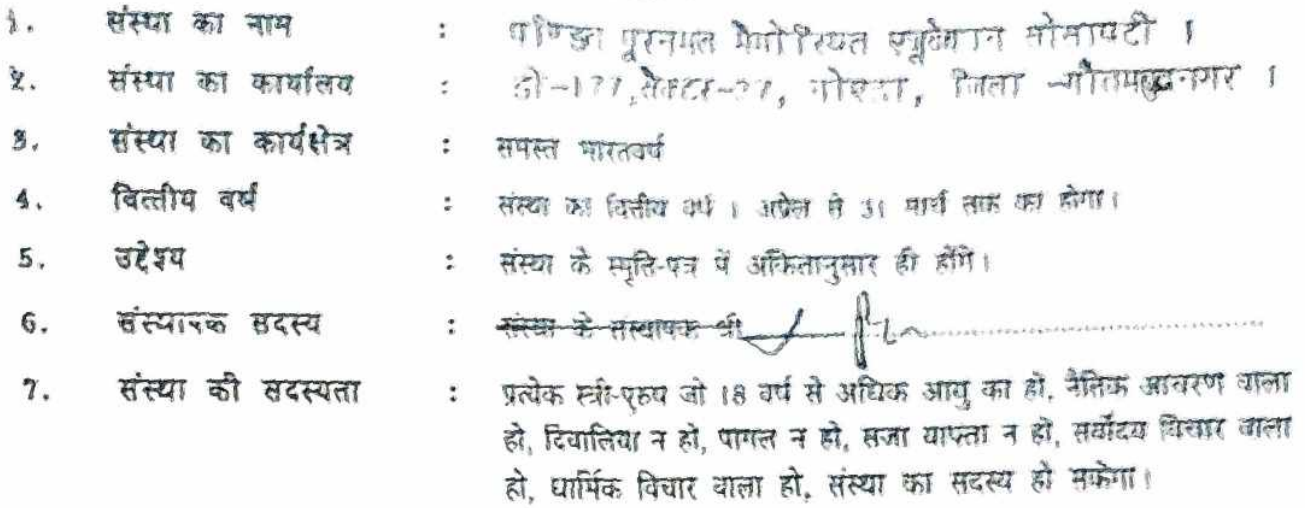 1. संस्था का नाम : पण्डित पूरनमल मेमोरियल एजुकेशन सोसायटी ।
2. संस्था का कार्यालय : डी-177, सेक्टर-27, नोएडा, जिला -गौतमबुद्धनगर ।
3. संस्था का कार्यक्षेत्र : समस्त भारतवर्ष
4. वित्तीय वर्ष : संस्था का वित्तीय वर्ष 1 अप्रेल से 31 मार्च तक का होगा।
5. उद्देश्य : संस्था के स्मृति-पत्र में अंकितानुसार ही होंगे।
6. संस्थापक सदस्य : संस्था के संस्थापक श्री
7. संस्था की सदस्यता : प्रत्येक स्त्री-पुरुष जो 18 वर्ष से अधिक आयु का हो, नैतिक आचरण वाला
हो, दिवालिया न हो, पागल न हो, सजा याफ्ता न हो, सर्वोदय विचार वाला
हो, धार्मिक विचार वाला हो, संस्था का सदस्य हो सकेगा।